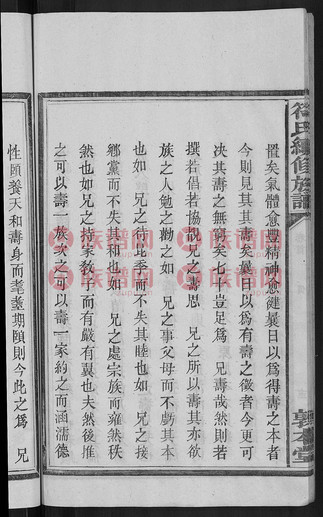 符氏續修族譜
敦本堂
懼矣氣體愈豐精神愈健曩日以為得壽之本者
今則見其其壽矣曩日以為有壽之後者今更可
決其壽之無窮矣七十豈足爲 兄壽哉然則若
撰若倡若協覩兄之壽思 兄之所以壽其亦欲
族之人勉之勸之如 兄之事父母而不虧其本
也如 兄之待比季而不失其睦也如 兄之接
鄉黨而不失其和也如 兄之處宗族而雍然秩
然也如兄之持家教子而有嚴有翼也夫然後推
之可以壽一族次之可以壽一家約之而涵濡德
性頤養天和壽身而耄耋期頤則今此之爲 兄